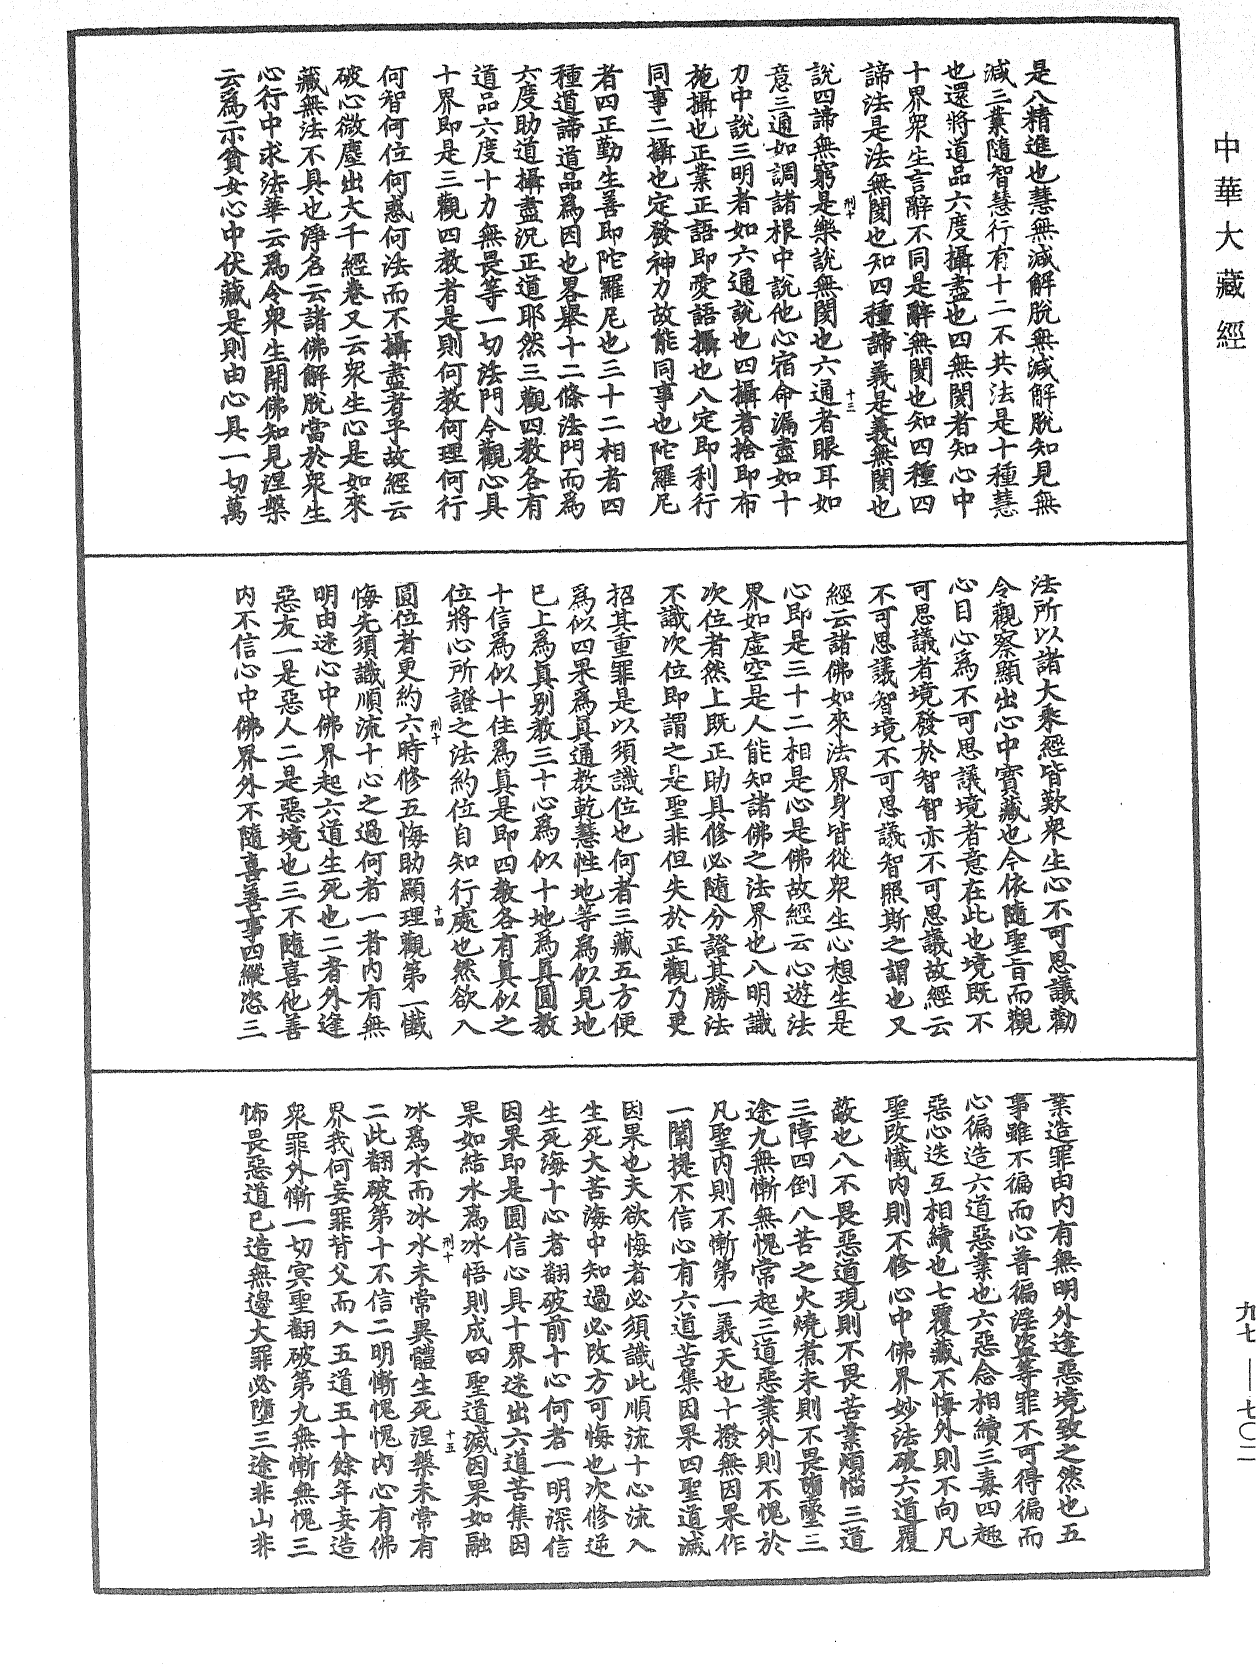 中華大藏經
是八精進也慧無減解脫無減解脫知見無
減三業隨智慧行有十二不共法是十種慧
也還將道品六度攝盡也四無閡者知心中
十界眾生言辭不同是辭無閡也知四種四
諦法是法無閡也知四種諦義是義無閡也
說四諦無窮是樂說無閡也六通者眼耳如
意三通如調諸根中說他心宿命漏盡如十
力中說三明者如六通說也四攝者捨即布
施攝也正業正語即愛語攝也八定即利行
同事二攝也定發神力故能同事也陀羅尼
者四正勤生善即陀羅尼也三十二相者四
種道諦道品為因也畧舉十二條法門而為
六度助道攝盡況正道耶然三觀四教各有
道品六度十力無畏等一切法門今觀心具
十界即是三觀四教者是則何教何理何行
何智何位何惑何法而不攝盡者乎故經云
破心微塵出大千經卷又云眾生心是如來
藏無法不具也淨名云諸佛解脫當於眾生
心行中求法華云為令眾生開佛知見涅槃
云為示貧女心中伏藏是則由心具一切萬
刑十
十三
法所以諸大乘經皆歎眾生心不可思議勸
令觀察顯出心中寶藏也今依隨聖旨而觀
心目心為不可思議境者意在此也境既不
可思議者境發於智智亦不可思議故經云
不可思議智境不可思議智照斯之謂也又
經云諸佛如來法界身皆從眾生心想生是
心即是三十二相是心是佛故經云心遊法
界如虛空是人能知諸佛之法界也八明識
次位者然上既正助具修必隨分證其勝法
不識次位即謂之是聖非但失於正觀乃更
招其重罪是以須識位也何者三藏五方便
為似四果為真通教乾慧性地等為似見地
已上為真別教三十心為似十地為真圓教
十信為似十住為真是即四教各有真似之
位將心所證之法約位自知行處也然欲入
圓位者更約六時修五悔助顯理觀第一懺
悔先須識順流十心之過何者一者內有無
明由迷心中佛界起六道生死也二者外逢
惡友一是惡人二是惡境也三不隨喜他善
內不信心中佛界外不隨喜善事四縱恣三
刑十
十四
業造罪由內有無明外逢惡境致之然也五
事雖不徧而心普徧淫盜等罪不可得徧而
心徧造六道惡業也六惡念相續三毒四趣
惡心迭互相續也七覆藏不悔外則不向凡
聖改懺內則不修心中佛界妙法破六道覆
蔽也八不畏惡道現則不畏苦業煩惱三道
三障四倒八苦之火燒煮未則不畏墮墜三
途九無慚無愧常起三道惡業外則不愧於
凡聖內則不慚第一義天也十撥無因果作
一闡提不信心有六道苦集因果四聖道滅
因果也夫欲悔者必須識此順流十心流入
生死大苦海中知過必改方可悔也次修逆
生死海十心者翻破前十心何者一明深信
因果即是圓信心具十界迷出六道苦集因
果如結水為冰悟則成四聖道滅因果如融
冰為水而冰水未常異體生死涅槃未常有
二此翻破第十不信二明慚愧愧內心有佛
界我何妄罪背父而入五道五十餘年妄造
眾罪外慚一切冥聖翻破第九無慚無愧三
怖畏惡道已造無邊大罪必墮三途非山非
刑十
十五
九七—七〇二